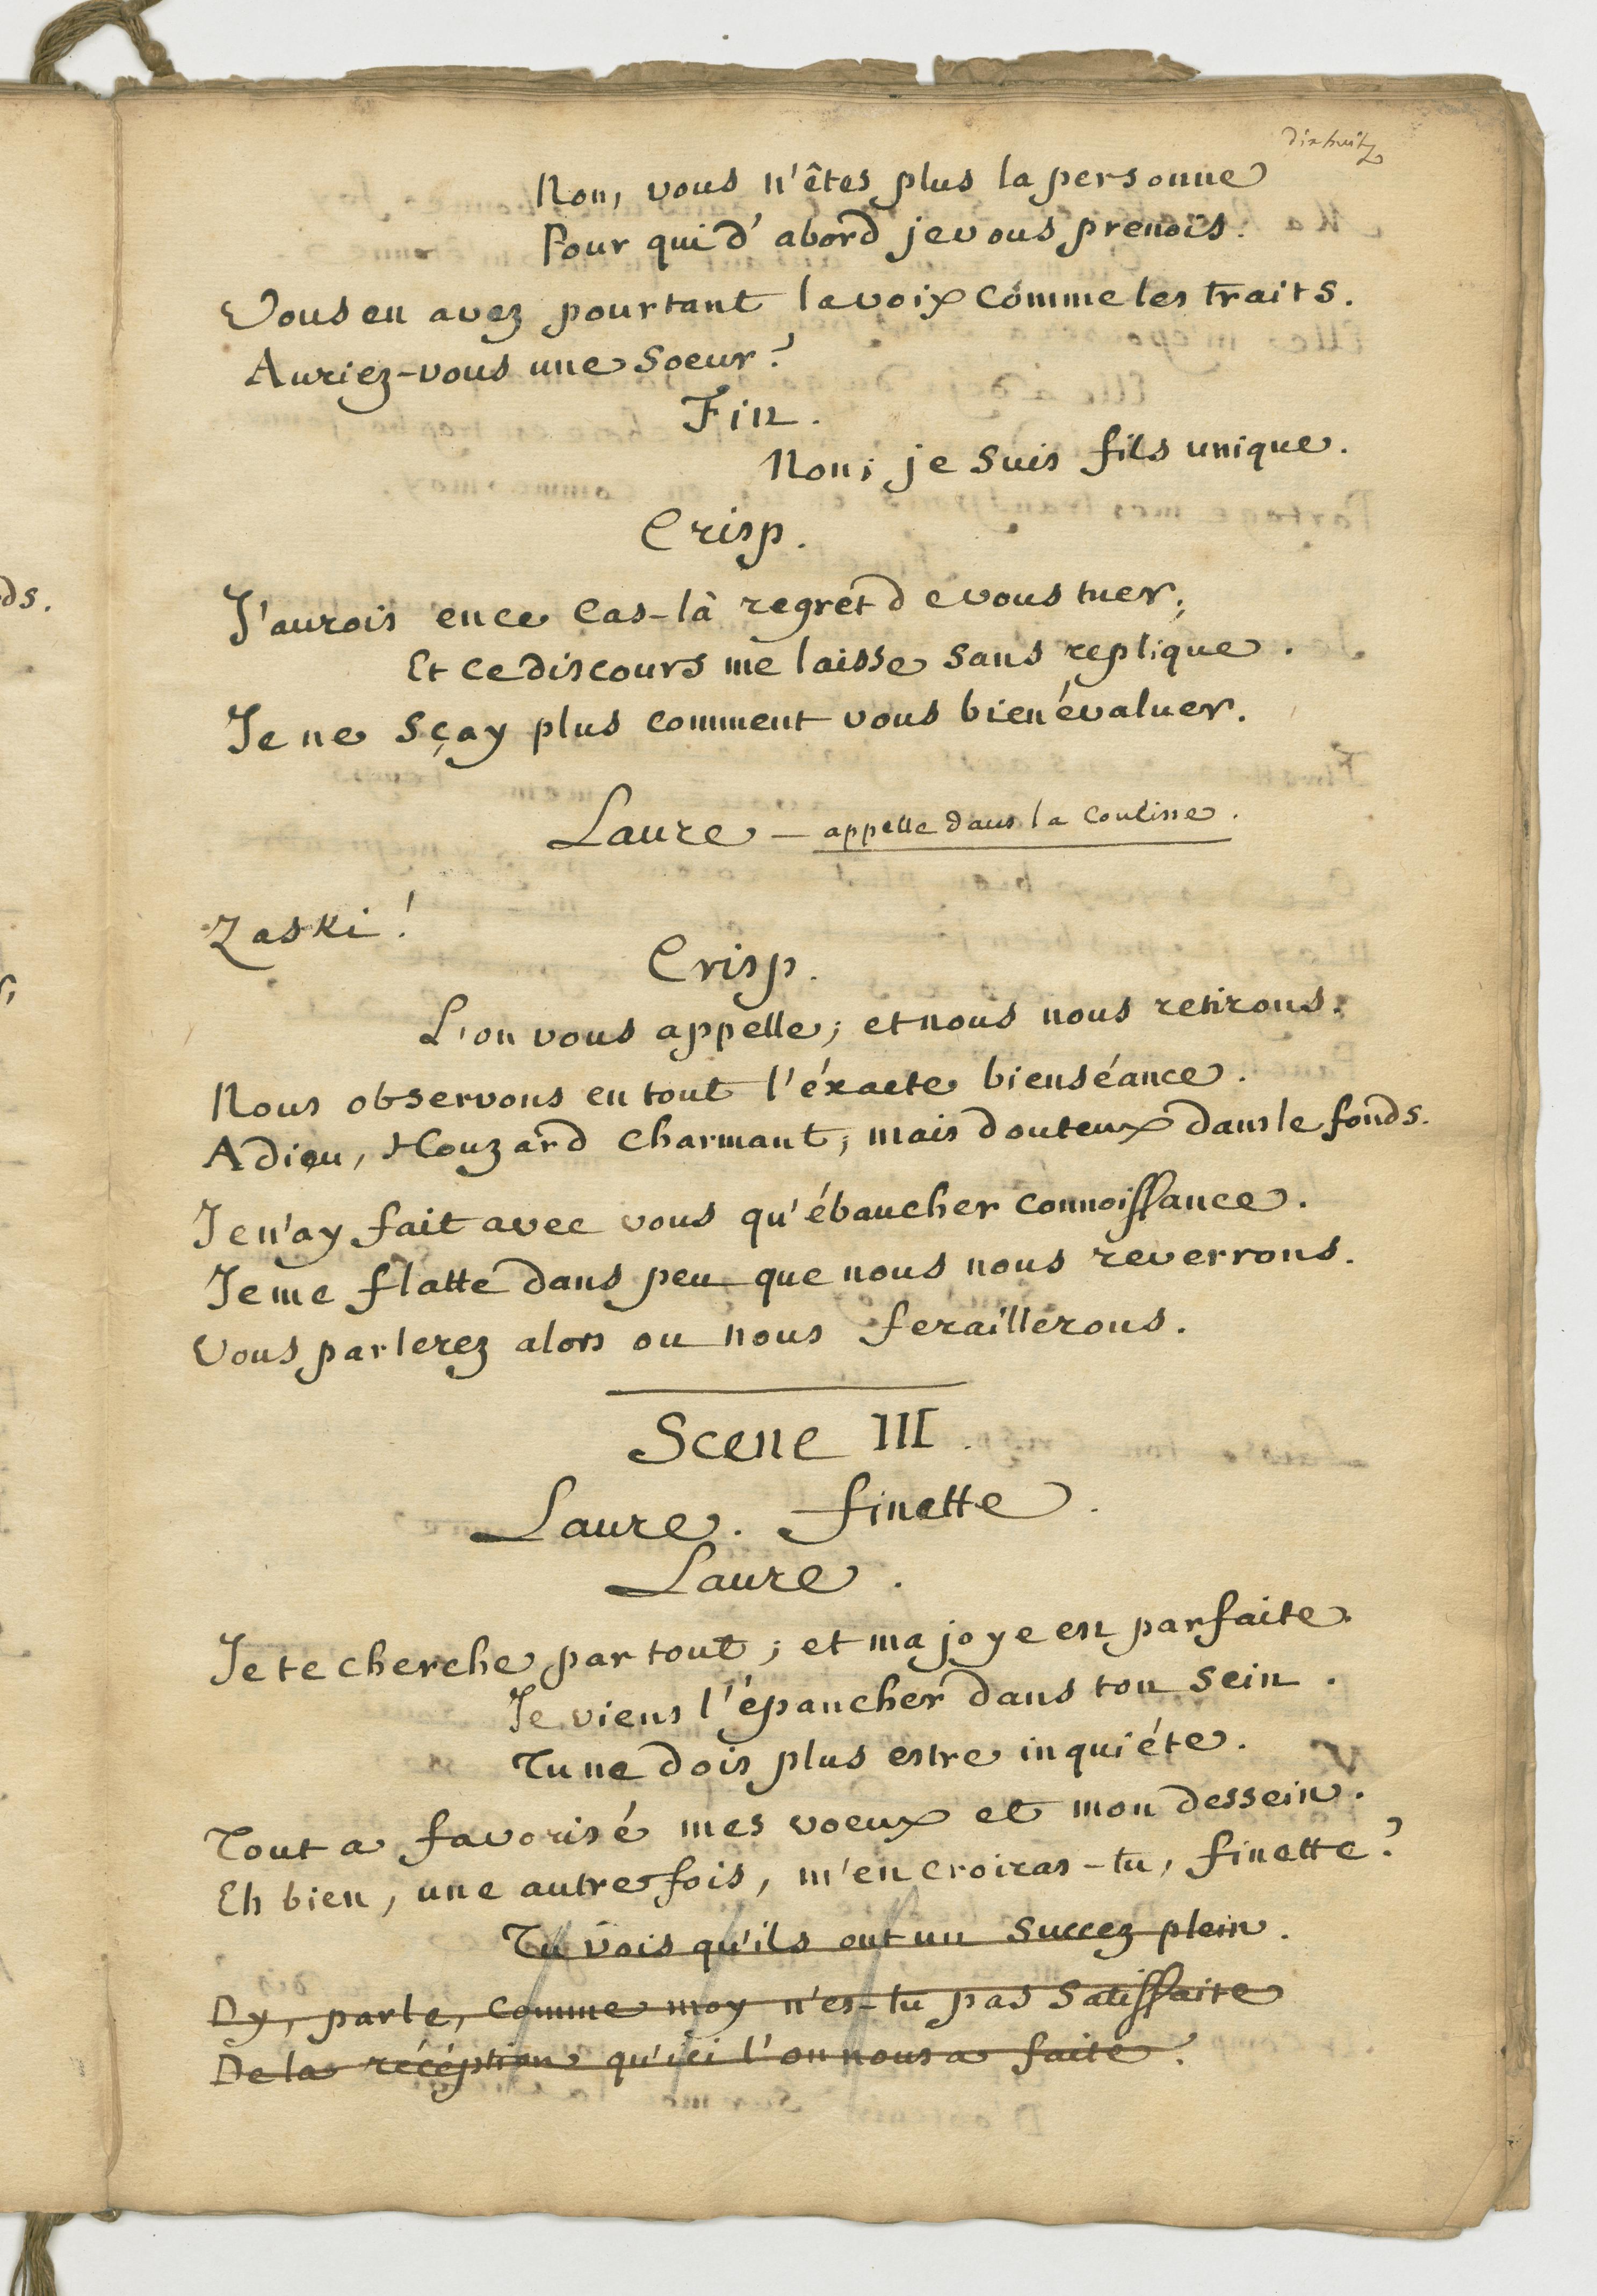 dixhuit
Non, vous n'êtes plus la personne
Pour qui d'abord je vous prenois.
Vous en avez pourtant la voix comme les traits.
Auriez-vous une soeur?
Fin.
Non; je suis fils unique.
Crisp.
J'aurois en ce cas-là regret de vous tuer;
Et ce discours me laisse sans replique.
Je ne sçay plus comment vous bien évaluer.
Laure - appelle dans la coulisse.
Zaski!
Crisp.
L'on vous appelle; et nous nous retirons.
Nous observons en tout l'éxacte bienséance.
Adieu, Houzard charmant; mais douteux dans le fonds.
Je n'ay fait avec vous qu'ébaucher connoissance.
Je me flatte dans peu que nous nous reverrons.
Vous parlerez alors ou nous feraillerons.
Scene III.
Laure. finette.
Laure.
Je te cherche par tout; et ma joye est parfaite.
Je viens l'épancher dans ton sein.
Tu ne dois plus estre inquiéte.
Tout a favorisé mes voeux et mon dessein.
Eh bien, une autre fois, m'en croiras-tu, finette?
Tu vois qu'ils ont un succez plein.
Dy, parle, comme moy n'es-tu pas satisfaite
De la récéption qu'ici l'on nous a faite?
ds.